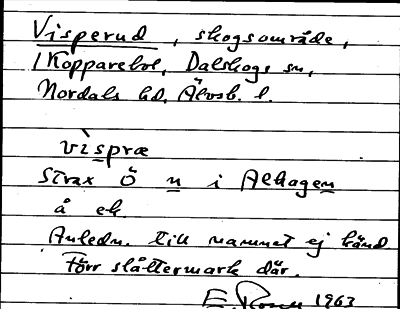 Visperud, skogsområde,
/Kopparebol, Dalskogs sn,
Nordals hd, Älvsb. l.
vìspræ
Strax Ö n i Alhagen
å ek.
Anledn. till namnet ej känd
Förr slåttermark där.
E. 1963